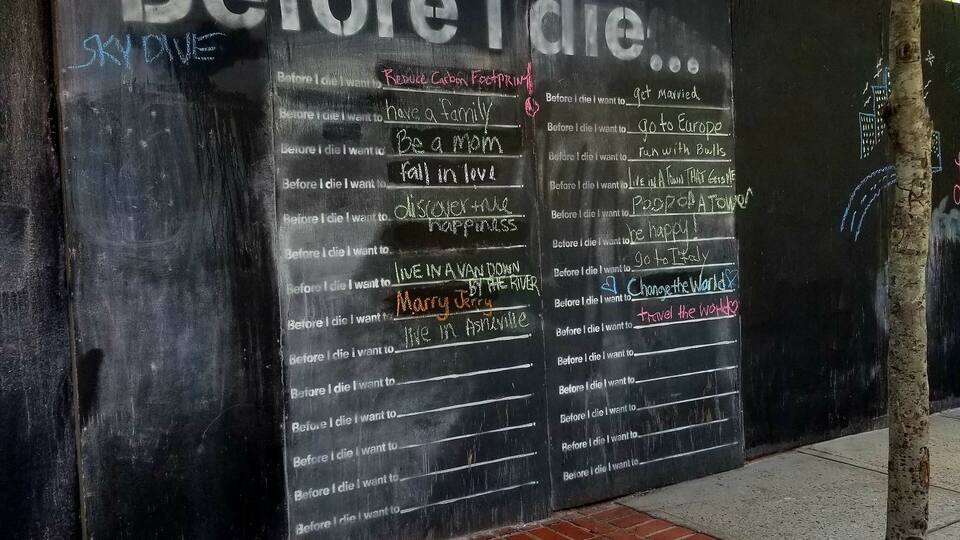 Before I die...
SKY DIVE
Before I die I want to Reduce Carbon Footprint!
Before I die I want to have a family
Before I die I want to Be a mom
Before I die I want to fall in love
Before I die I want to discover true
happiness
Before I die I want to
Before I die I want to LIVE IN A VAN DOWN
BY THE RIVER
Before I die I want to Marry Jerry
Before I die I want to live in Asheville
Before I die I want to
Before I die I want to
Before I die I want to
Before I die I want to
Before I die I want to
Before I die I want to get married
Before I die I want to go to Europe
Before I die I want to run with Bulls
Before I die I want to LIVE IN A TOWN THAT Gets ME
Before I die I want to POOP OF A TOWER
Before I die I want to be happy!
Before I die I want to go to Italy
Before I die I want to Change the World
Before I die I want to travel the World
Before I die I want to
Before I die I want to
Before I die I want to
Before I die I want to
Before I die I want to